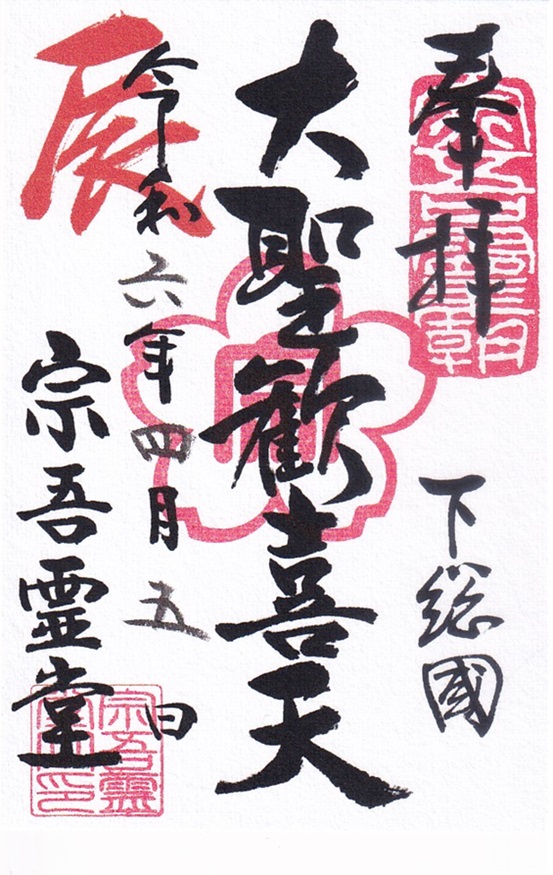 奉拝
下総國
大聖歓喜天
令和六年四月五日
辰
宗吾霊堂
宗吾霊堂之印